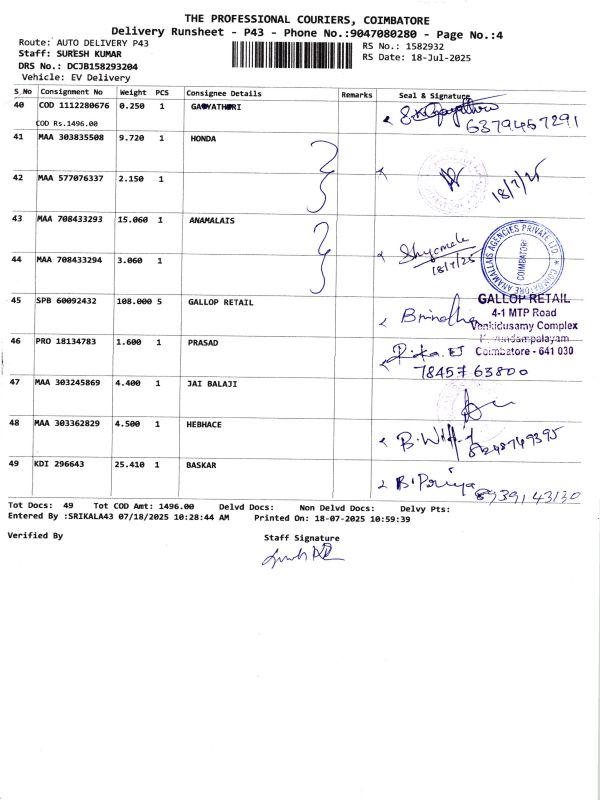 THE PROFESSIONAL COURIERS, COIMBATORE
Delivery Runsheet - P43 - Phone No.:9047080280 - Page No.:4
Route: AUTO DELIVERY P43
RS No.: 1582932
Staff: SURESH KUMAR
RS Date: 18-Jul-2025
DRS No.: DCJB158293204
Vehicle: EV Delivery
S_No Consignment No Weight PCS Consignee Details Remarks Seal & Signature
40 COD 1112280676 0.250 1 GAYATHRI
COD Rs.1496.00
6379457291
41 MAA 303835508 9.720 1 HONDA
42 MAA 577076337 2.150 1
18/7/25
43 MAA 708433293 15.060 1 ANAMALAIS
Shyamala
18/7/25
ANAMALLAIS AGENCIES PRIVATE LTD. COIMBATORE
44 MAA 708433294 3.060 1
45 SPB 60092432 108.000 5 GALLOP RETAIL
Brindha
GALLOP RETAIL
4-1 MTP Road
Venkidusamy Complex
Coimbatore - 641 030
46 PRO 18134783 1.600 1 PRASAD
78457 63800
47 MAA 303245869 4.400 1 JAI BALAJI
48 MAA 303362829 4.500 1 HEBHACE
8248749395
49 KDI 296643 25.410 1 BASKAR
B. Priya
8939143130
Tot Docs: 49 Tot COD Amt: 1496.00 Delvd Docs: Non Delvd Docs: Delvy Pts:
Entered By :SRIKALA43 07/18/2025 10:28:44 AM Printed On: 18-07-2025 10:59:39
Verified By
Staff Signature